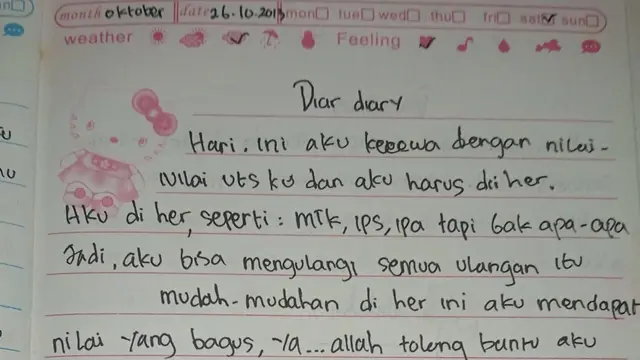 month oktober date 26.10.2013 mon tue wed thu fri sat sun
weather Feeling
Diar diary
Hari. ini aku kecewa dengan nilai-
nilai uts ku dan aku harus di her.
Aku di her, seperti: MTK, IPS, IPA tapi Gak apa-apa
Jadi, aku bisa mengulangi semua ulangan itu
mudah-mudahan di her ini aku mendapat
nilai yang bagus, ya... allah tolong bantu aku